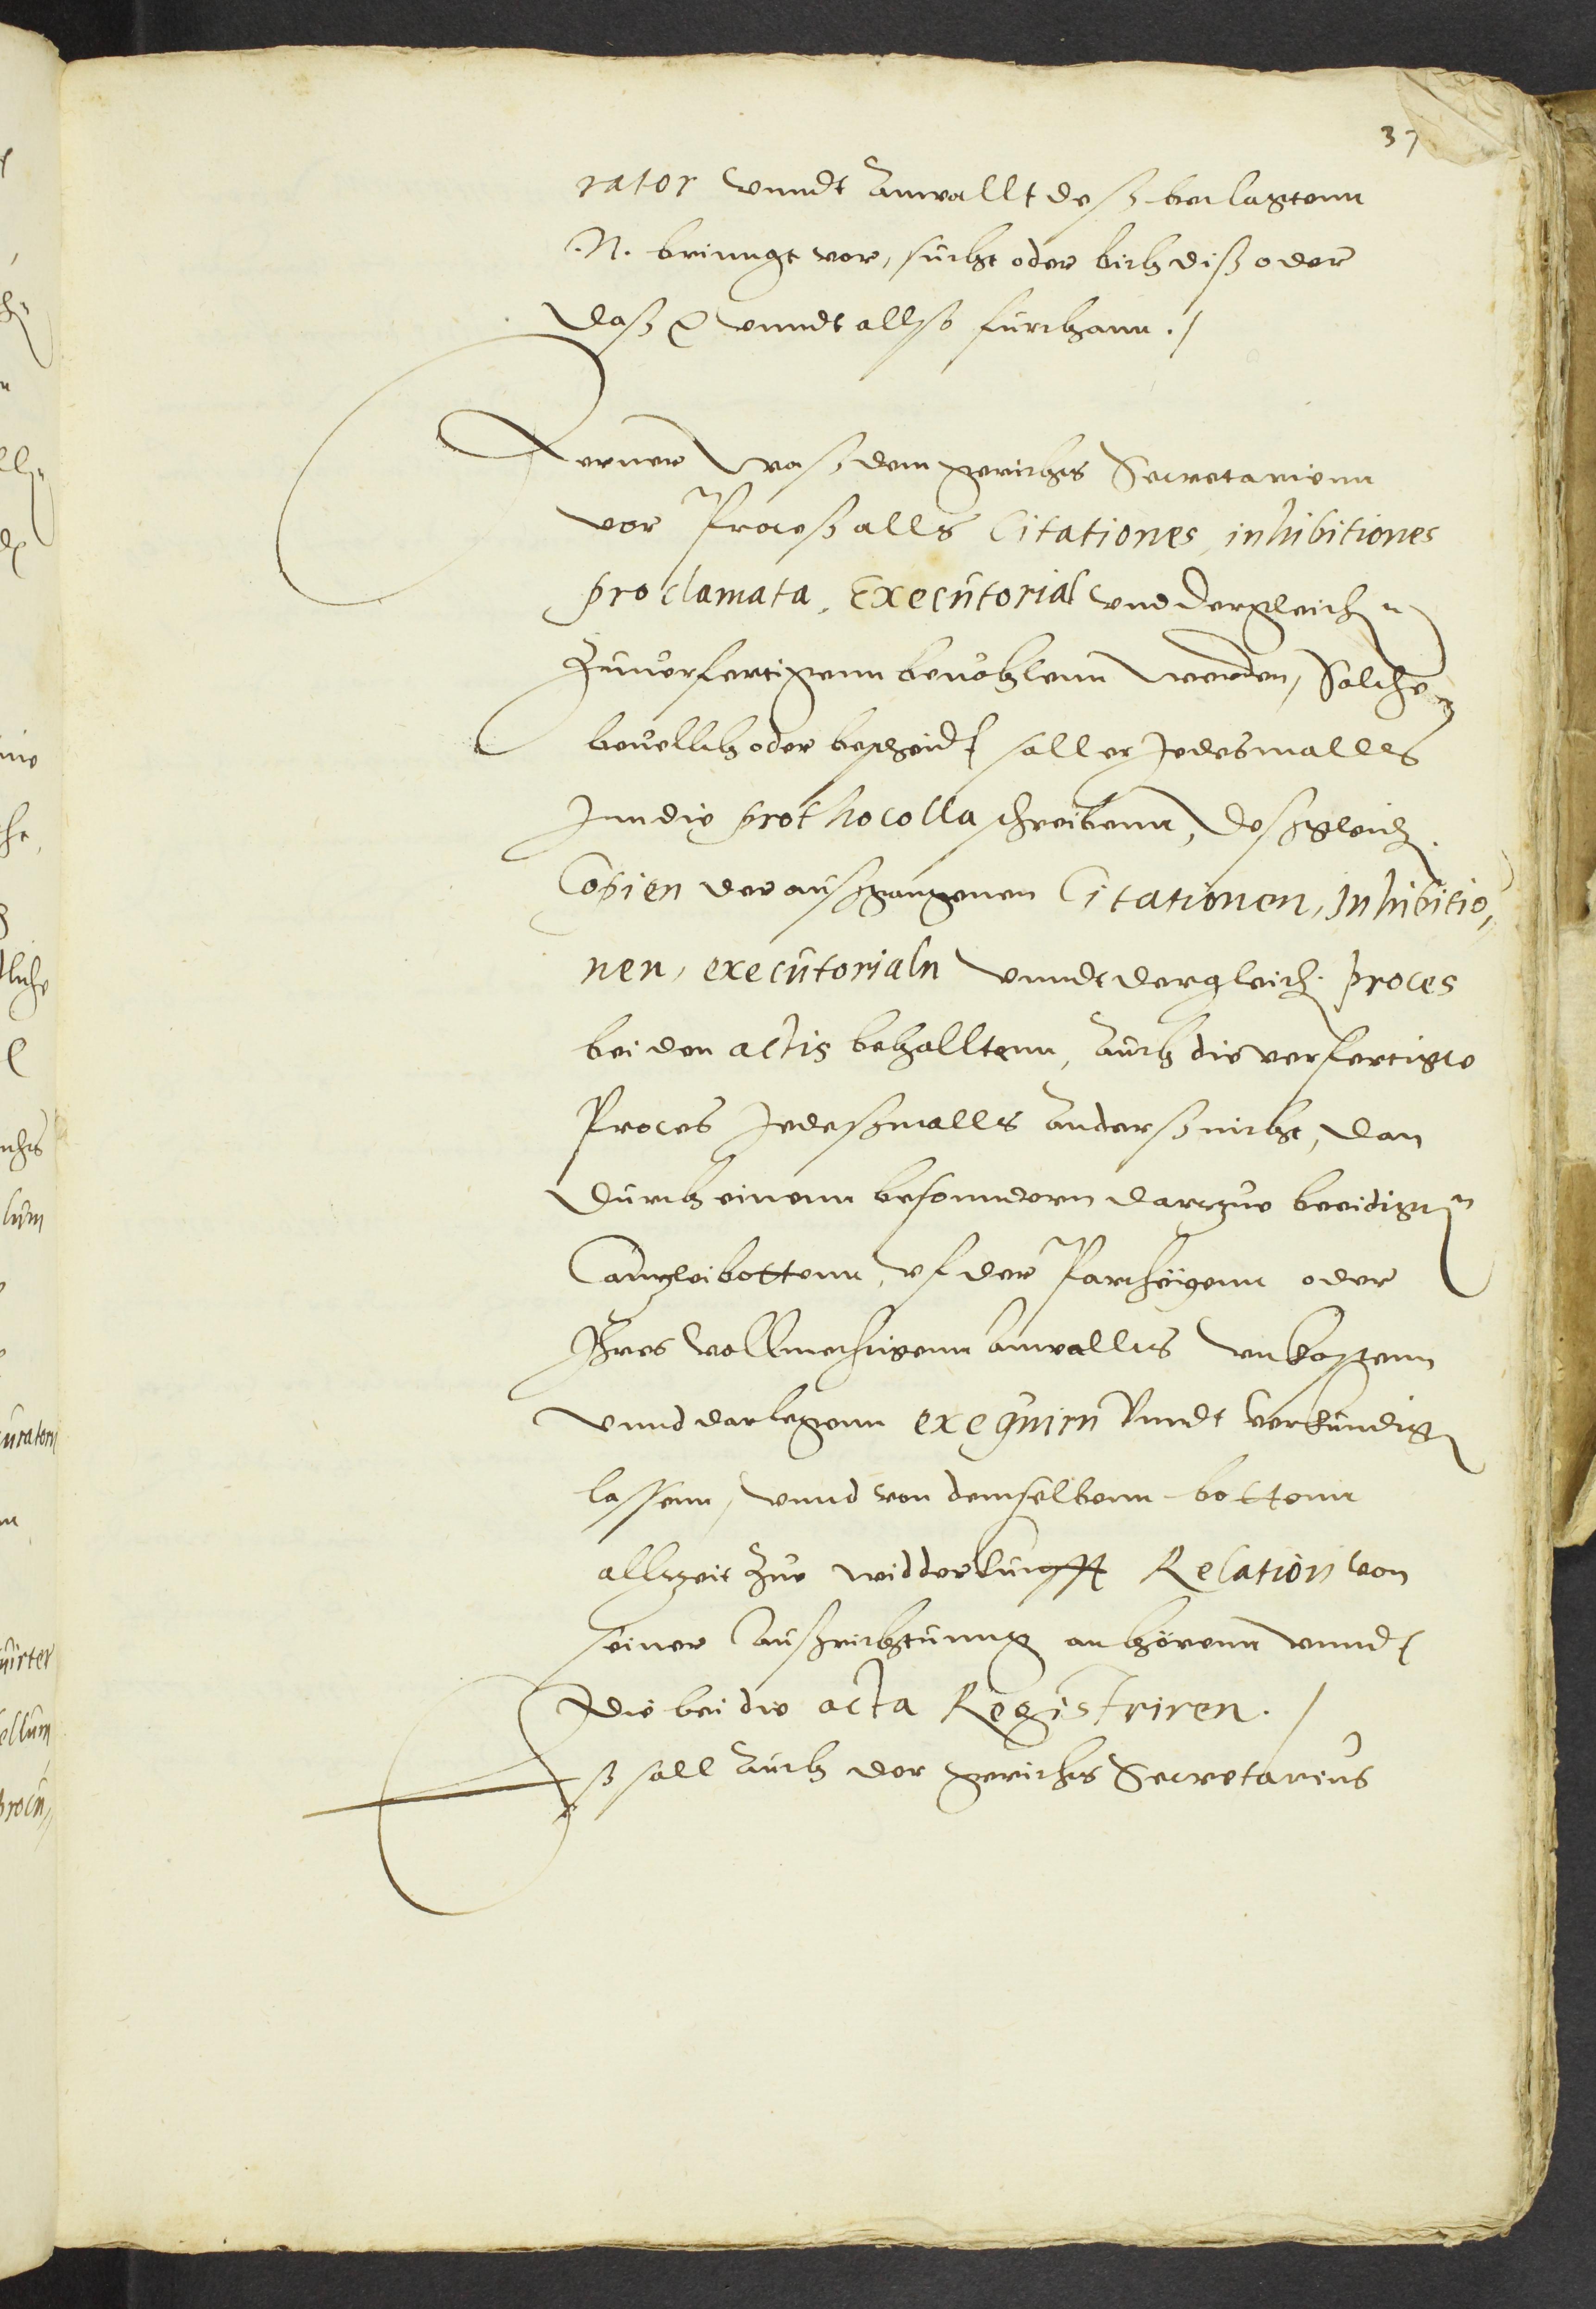 37
rator vnndt Anwallt deß beclagtenn
.N. brinngt vor, sucht oder bith diß oder
daß  vnndt allso furthann ./
Ferner waß dem gerichts Secretarienn
vor Proceß alls Citationes, inhibitiones
proclamata, Executorial vnd dergleichen
Zuuerfertigenn beuohlenn werden, Solche
beuellch oder bescheidt soll er Jedesmalls
Jnn die prothocolla schreibenn, deßgleich.
Copien der außgangenen Citationen, Inhibitio,
nen, executorialn vnndt dergleich. proces
bei den actis behalltenn, Auch die verfertigte
Proces Jedeßmalls Anderß nicht, dan
durch einenn besonndern darzue beeidigten
Canzleibottenn, vf der Partheigenn oder
Jhres Vollmechtigenn Anwallts vnkostenn
vnnd darlegenn exequirn Vnndt Verkundigen
lassenn, vnnd von demselbenn bottenn
allzeit Zue widderkunfft Relation von
seiner Außrichtunng anhörenn vnndt
die bei die acta Registriren. /
Eß soll Auch der gerichts Secretarius